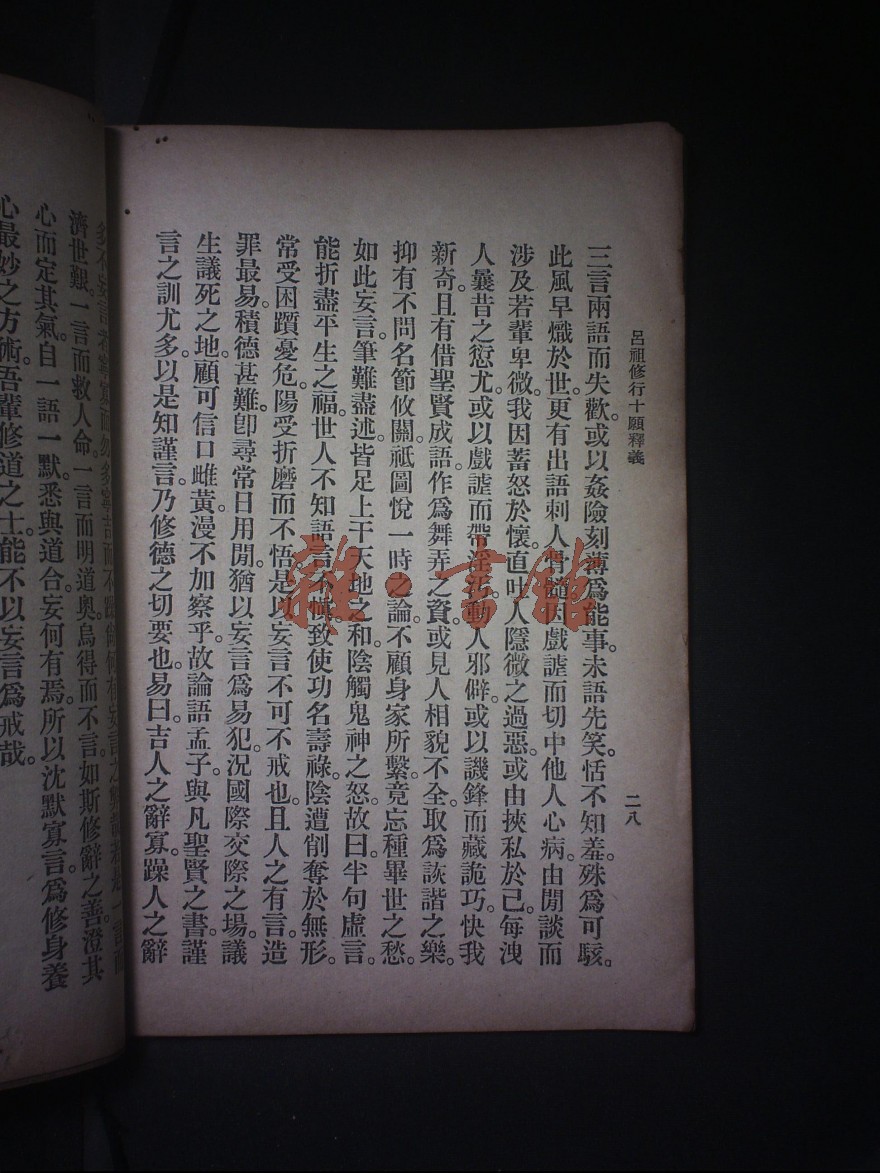 呂祖修行十願釋義
二八
三言兩語而失歡。或以姦險刻薄爲能事。未語先笑。恬不知羞。殊爲可駭。
此風早熾於世。更有出語刺人骨髓。因戲謔而切中他人心病。由閒談而
涉及若輩卑微。我因蓄怒於懷。直吐人隱微之過惡。或由挾私於己。每洩
人曩昔之愆尤。或以戲謔而帶淫泆。動人邪僻。或以譏鋒而藏詭巧。快我
新奇。且有借聖賢成語。作爲舞弄之資。或見人相貌不全。取爲詼諧之樂。
抑有不問名節攸關。祗圖悅一時之論。不顧身家所繫。竟忘種畢世之愁。
如此妄言。筆難盡述。皆足上干天地之和。陰觸鬼神之怒。故曰。半句虛言。
能折盡平生之福。世人不知語言不愼。致使功名壽祿。陰遭削奪於無形。
常受困躓憂危。陽受折磨而不悟。是以妄言不可不戒也。且人之有言。造
罪最易。積德甚難。卽尋常日用閒。猶以妄言爲易犯。況國際交際之場。議
生議死之地。顧可信口雌黃。漫不加察乎。故論語孟子。與凡聖賢之書。謹
言之訓尤多。以是知謹言。乃修德之切要也。易曰。吉人之辭寡。躁人之辭
濟世艱。一言而救人命。一言而明道奧。烏得而不言。如斯修辭之善。澄其
心而定其氣。自一語一默。悉與道合。妄何有焉。所以沈默寡言。爲修身養
心最妙之方術。吾輩修道之士。能不以妄言爲戒哉。
雜·書館